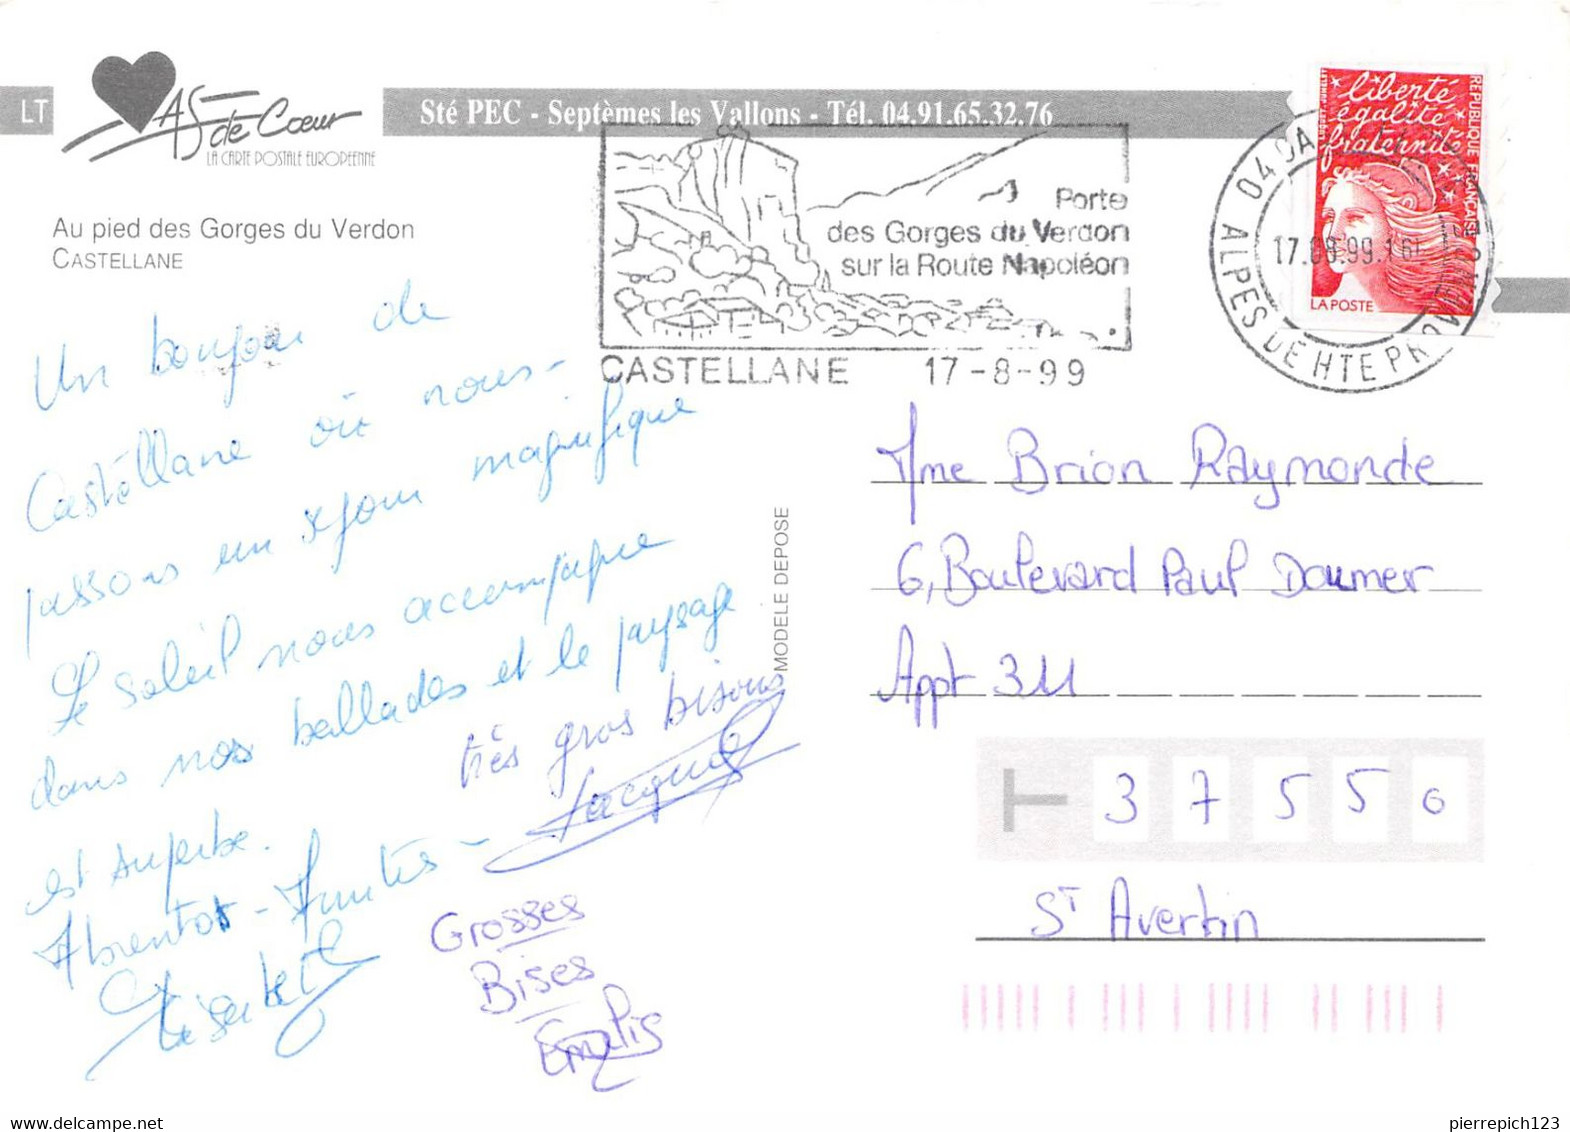 LT
AS de Cœur
LA CARTE POSTALE EUROPEENNE
Sté PEC - Septèmes les Vallons - Tél. 04.91.65.32.76
Au pied des Gorges du Verdon
CASTELLANE
Porte
des Gorges du Verdon
sur la Route Napoléon
CASTELLANE 17-8-99
liberté
égalité
fraternité
RÉPUBLIQUE FRANÇAISE
LA POSTE
17.08.99.16
ALPES DE HTE PROVENCE
Un bonjour de
Castellane où nous
passons un séjour magnifique
Le soleil nous accompagne
dans nos ballades et le paysage
est superbe.
très gros bisous
Jacques
Grosses
Bises
MODELE DEPOSE
Mme Brion Raymonde
6, Boulevard Paul Doumer
Appt 311
37550
St Avertin
pierrepich123